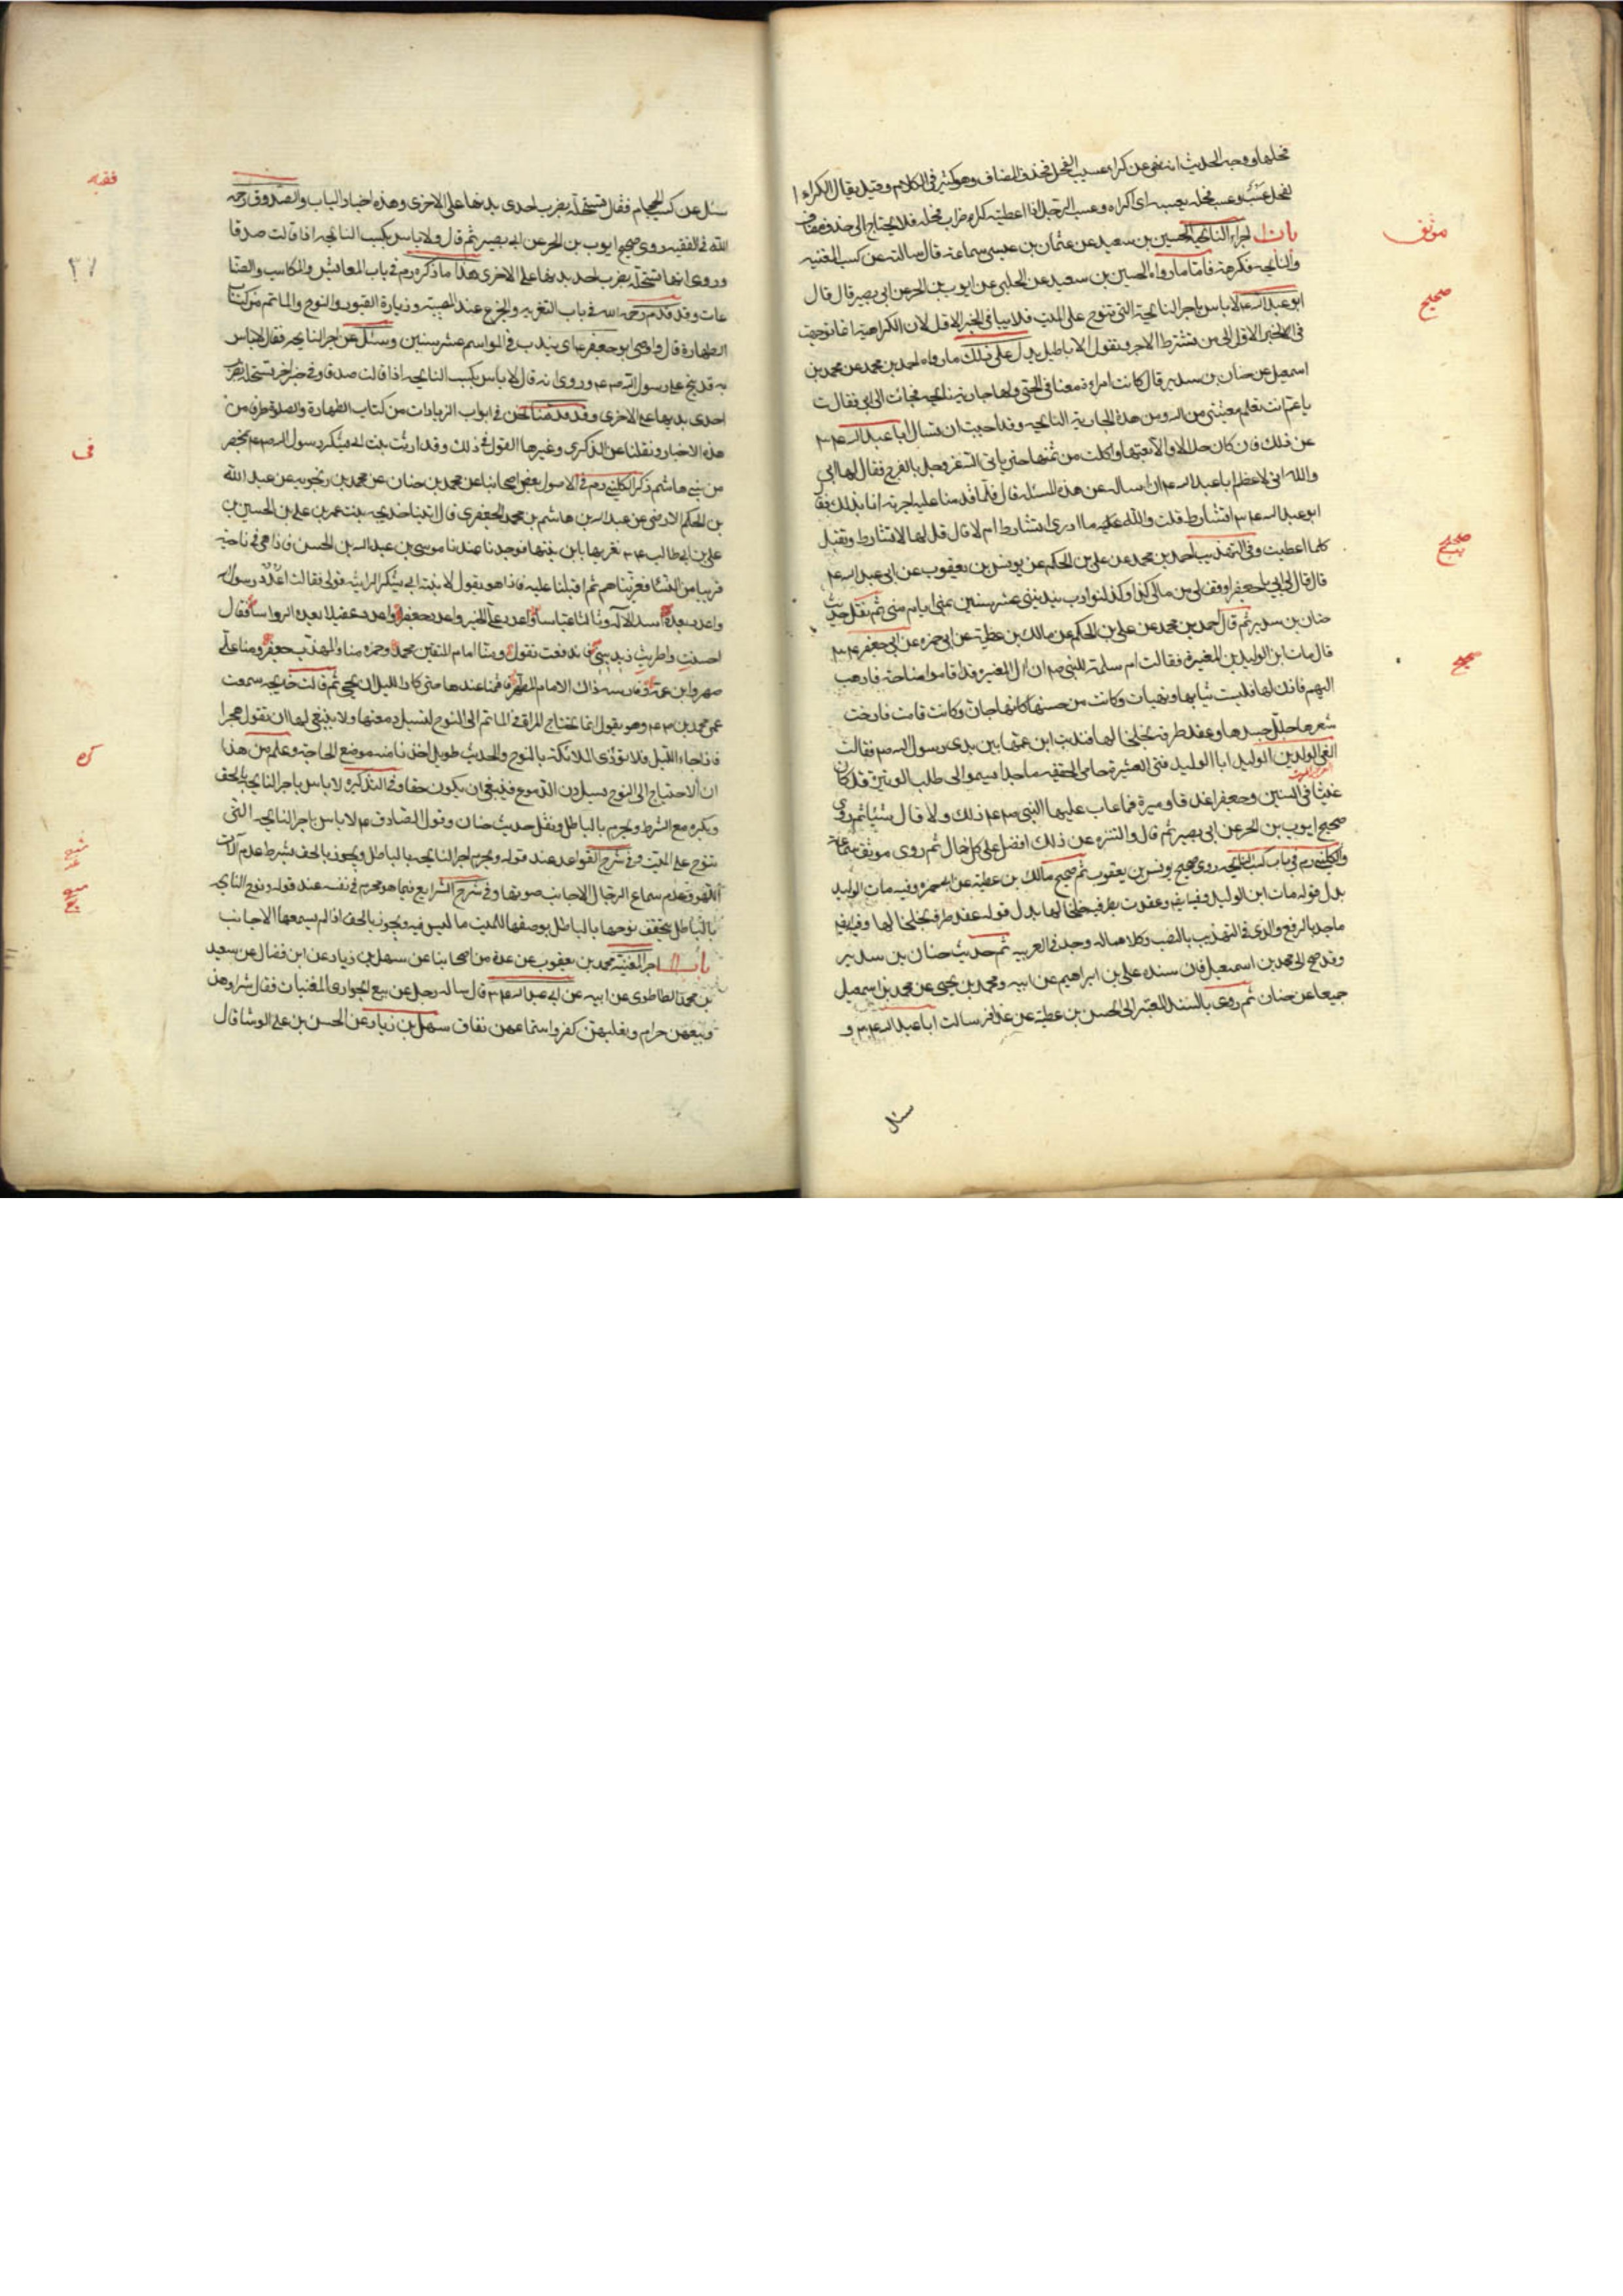 فحلها ووجه الحديث انه نهى عن كراء عسب الفحل فحذف المضاف وهو كثير في الكلام وقيل يقال لكراء ا
لفحل عسب وعسب فحله يعسبه اى اكراه وعسب الرجل اذا اعطيته كراء ضراب فحله فلا يحتاج الى حذف مضاف
موثق
باب اجر النايحه الحسين بن سعيد عن عثمان بن عيسى عن سماعة قال سالته عن كسب المغنيه
والنايحه فكرهه فاما ما رواه الحسين بن سعيد عن الحلبي عن ايوب بن الحر عن ابى بصير قال قال
صحيح
ابو عبد الله ع لا باس باجر النايحة التي تنوح على الميت فلا ينافى الخبر الاول لان الكراهية انما توجهت
في الخبر الاول الى من تشترط الاجر وتقول الاباطيل يدل على ذلك ما رواه احمد بن محمد عن محمد بن
اسمعيل عن حنان بن سدير قال كانت امراة معنا في الحى ولها جارية نايحه فجاءت الى ابى فقالت
يا عم انت تعلم معيشتى من الله ومن هذه الجارية النايحه وقد احببت ان تسال ابا عبد الله ع
عن ذلك فان كان حلالا والا بعتها واكلت من ثمنها حتى ياتى الله عز وجل بالفرج فقال لها ابى
والله انى لاعظم ابا عبد الله ع ان اساله عن هذه المسئله قال فلما قدمنا عليه اخبرته انا بذلك فقا
ابو عبد الله ع اتشارط قلت والله ما ادرى اتشارط ام لا قال قل لها لا تشارط وتقبل
صحيح
كلما اعطيت وفى التهذيب احمد بن محمد عن على بن الحكم عن يونس بن يعقوب عن ابى عبد الله ع
قال قال لى ابى يا جعفر اوقف لى من مالى كذا وكذا لنوادب يندبنى عشر سنين بمنى ايام منى ثم نقل حديث
حنان بن سدير ثم قال احمد بن محمد عن على بن الحكم عن مالك بن عطية عن ابى حمزه عن ابى جعفر ع
صحيح
قال مات ابن الوليد بن المغيرة فقالت ام سلمة للنبى ص ان آل المغيره قد اقاموا مناحة فاذهب
اليهم فاذن لها فلبست ثيابها وتهيات وكانت من حسنها كانها جان وكانت اذا قامت فارخت
شعرها جلل جسدها وعقدت طرفيه بخلخالها فندبت ابن عمها بين يدى رسول الله ص فقالت
انعى الوليد بن الوليد ابا الوليد فتى العشيرة حامى الحقيقه ماجدا يسموا الى طلب الوتيره قد كان
غيثا في السنين وجعفرا غدقا وميرة فما عاب عليها النبى ص ع ذلك ولا قال شيئا ثم روى
صحيح ايوب بن الحر عن ابى بصير ثم قال والتنزه عن ذلك افضل على كل حال ثم روى موثق سماعة
والكليني ره في باب كسب النايحه روى صحيح يونس بن يعقوب ثم صحيح مالك بن عطية عن ابى حمزه وفيه مات الوليد
بدل قوله مات ابن الوليد وفيها ايضا وعقدت بطرفيه خلخالها بدل قوله عقد طرفه بخلخالها وفيه ايضا
ماجد بالرفع والذى في التهذيب بالنصب وكلاهما له وجه في العربيه ثم حديث حنان بن سدير
وقد صح الى محمد بن اسمعيل فان سنده على بن ابراهيم عن ابيه ومحمد بن يحيى عن محمد بن اسمعيل
جميعا عن حنان ثم روى بالسند المعتبر الى الحسن بن عطية عن عذافر سالت ابا عبد الله ع و
سئل
فقيه
سئل عن كسب الحجام فقال تستحله بضرب احدى يديها على الاخرى وهذه اخبار الباب والصدوق رحمه
الله في الفقيه روى صحيح ايوب بن الحر عن ابى بصير ثم قال ولا باس بكسب النايحه اذا قالت صدقا
٣٧
وروى انها تستحله بضرب احد يديها على الاخرى هذا ما ذكره ره في باب المعايش والمكاسب والصنا
عات وقد قدم رحمه الله في باب التعزيه والجزع عند المصيبة وزيارة القبور والنوح والماتم من كتاب
الطهارة قال واوصى ابو جعفر ع ان يندب في المواسم عشر سنين وسئل عن اجر النايحه فقال لا باس
به قد نيح على رسول الله ص ع وروى انه قال لا باس بكسب النايحه اذا قالت صدقا وفى خبر اخر تستحله بضرب
احدى يديها على الاخرى وقد قدمنا نحن في ابواب الزيادات من كتاب الطهارة والصلوة طرفا من
فى
هذه الاخبار ونقلنا عن الذكرى وغيرها القول في ذلك وقد ارثت بنت ابى يشكر رسول الله ص ع بمحضر
من بنى هاشم ذكر الكليني ره في الاصول بعض اصحابنا عن محمد بن حنان عن محمد بن رنجويه عن عبد الله
بن الحكم الارمنى عن عبد الله بن هاشم بن محمد الجعفرى قال اتينا خديجه بنت عمر بن على بن الحسين بن
على بن ابى طالب ع نعزيها بابن بنتها فوجدنا عندنا موسى بن عبد الله بن الحسن فاذا هى في ناحية
قريبا من النساء فعزيناهم ثم اقبلنا عليه فاذا هو يقول لابنة ابى يشكر الراثيه قولى فقالت اعدد رسول الله
واعدد بعده اسد الاله وثالثا عباسا واعدد على الخير واعدد جعفرا واعدد عقيلا بعده الرواسا فقال
احسنت واطربت زيدينى فاندفعت تقول ومنا امام المتقين محمد وحمزه منا والمهذب جعفر ومنا على
صهره وابن عمه وفارسه ذاك الامام المطهر فاقمنا عندها حتى كاد الليل ان يجئ ثم قالت خديجه سمعت
عمى محمد بن على ع وهو يقول انما تحتاج المراة في الماتم الى النوح لتسيل دمعتها ولا ينبغى لها ان تقول هجرا
كره
فاذا جاء الليل فلا تؤذى الملائكة بالنوح والحديث طويل اخذنا منه موضع الحاجة وعلم من هذا
ان الاحتياج الى النوح لسيلان الدموع فينبغى ان يكون حقا وفى التذكره لا باس باجر النايحه بالحق
ويكره مع الشرط ويحرم بالباطل ونقل حديث حنان وقول الصادق ع لا باس باجر النايحه التى
تنوح على الميت وفى شرح القواعد عند قوله ويحرم اجر النايحه بالباطل ويجوز بالحق بشرط عدم آلات
اللهو وعدم سماع الرجال الاجانب صوتها وفى شرح الشرايع فيما هو محرم في نفسه عند قوله ونوح النايحه
بالباطل يتحقق نوحها بالباطل بوصفها للميت ما ليس فيه ويجوز بالحق اذا لم يسمعها الاجانب
باب اجر المغنيه محمد بن يعقوب عن عدة من اصحابنا عن سهل بن زياد عن ابن فضال عن سعيد
بن محمد الطاطرى عن ابيه عن ابى عبد الله ع قال ساله رجل عن بيع الجوارى المغنيات فقال شراوهن
وبيعهن حرام وتعليمهن كفر واستماعهن نفاق سهل بن زياد عن الحسن بن على الوشا قال